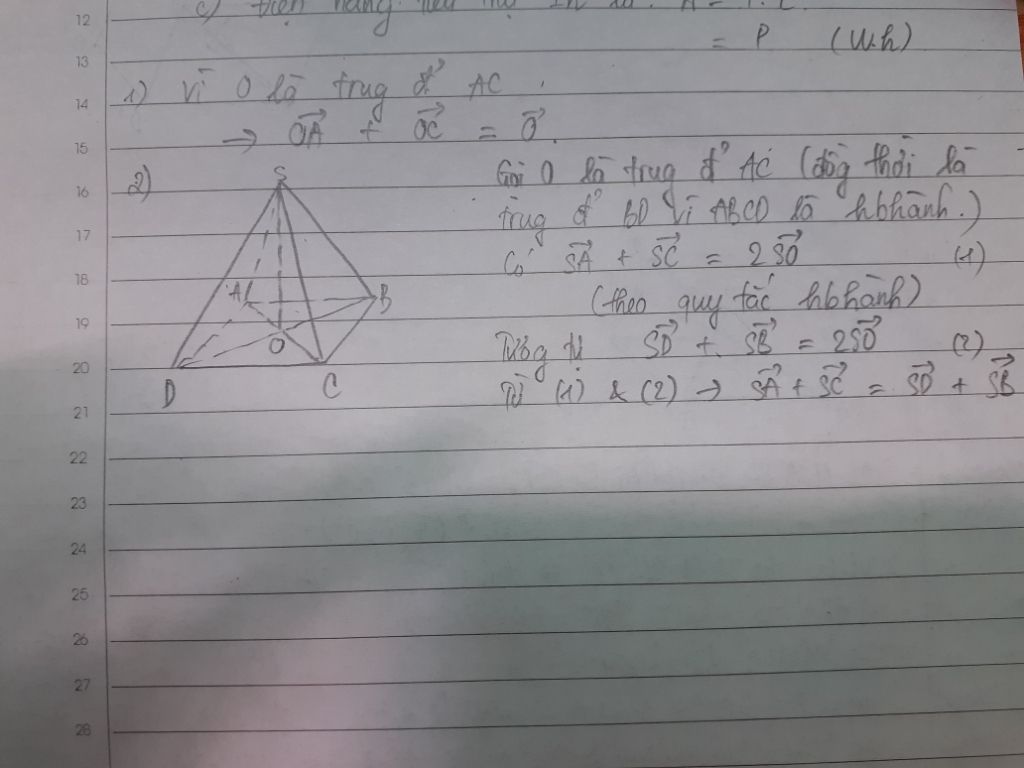 12
= P (W.h)
13
1) Vì O là trug đ' AC.
14
→ \vec{OA} + \vec{OC} = \vec{O}.
15
2)
S
A
B
O
D
C
Gọi O là trug đ' AC (đồg thời là
16
trug đ' BD vì ABCD là hbhành.)
17
Có \vec{SA} + \vec{SC} = 2\vec{SO} (1)
18
(theo quy tắc hbhành)
19
Tươg tự \vec{SD} + \vec{SB} = 2\vec{SO} (2)
20
Từ (1) & (2) → \vec{SA} + \vec{SC} = \vec{SD} + \vec{SB}
21
22
23
24
25
26
27
28